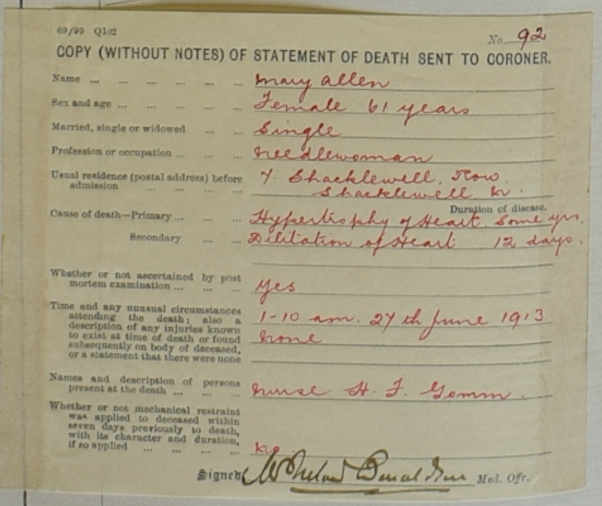 69/99 Q102
No. 92
COPY (WITHOUT NOTES) OF STATEMENT OF DEATH SENT TO CORONER.
Name ... ... ... ... ... ... Mary Allen
Sex and age ... ... ... ... ... Female 61 years
Married, single or widowed ... ... Single
Profession or occupation ... ... ... Needlewoman
Usual residence (postal address) before 7. Shacklewell, Row.
admission ... ... ... ... Shacklewell N.
Duration of disease.
Cause of death—Primary ... ... ... Hypertrophy of Heart, Some yrs.
Secondary ... ... Dilitation of Heart 12 days.
Whether or not ascertained by post
mortem examination ... ... ... Yes
Time and any unusual circumstances
attending the death; also a 1-10 am. 27th June 1913
description of any injuries known
to exist at time of death or found None
subsequently on body of deceased,
or a statement that there were none
Names and description of persons
present at the death ... ... ... Nurse H. F. Gomm.
Whether or not mechanical restraint
was applied to deceased within
seven days previously to death,
with its character and duration,
if so applied ... ... ... ... No
Signed Med. Offr.